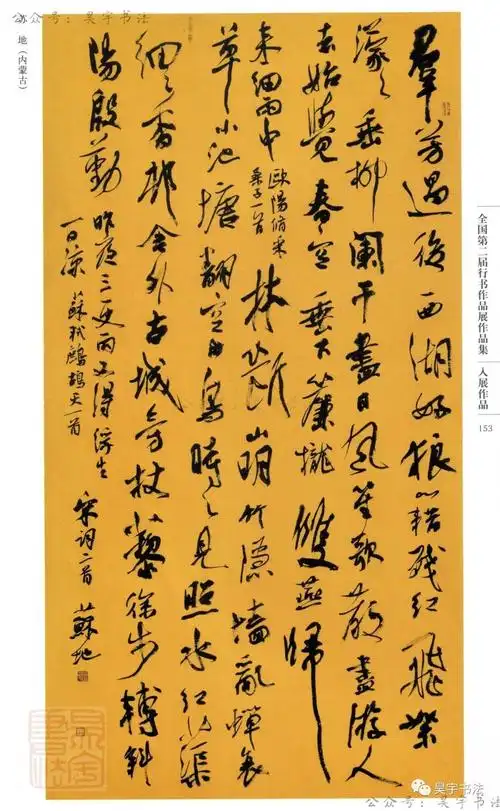 公众号：昊宇书法
苏 地（内蒙古）
全国第二届行书作品展作品集
入展作品
153
羣芳過後西湖好狼藉残红飛絮
濛〻垂柳闌干盡日風笙歌散盡游人
去始覺春空垂下簾櫳雙燕歸
來細雨中
歐陽脩采
桑子一首
林斷山明竹隱墻亂蟬衰
草小池塘翻空白鳥時〻見照水红蕖
細〻香邨舍外古城旁杖藜徐步轉斜
陽殷勤
昨夜三更雨又得浮生
一日涼
蘇軾鷓鴣天一首
宋词二首
蘇地
昊宇书法
公众号：昊宇书法